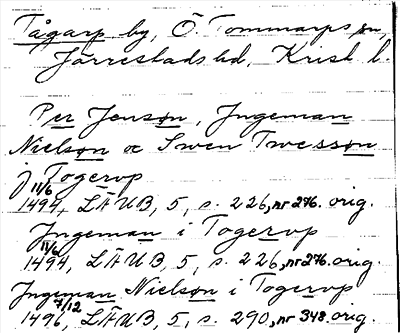 Tågarp by, Ö. Tommarps sn,
Järrestads hd, Krist. l.
Per Jensøn, Ingeman
Nielsøn oc Swen Twessøn
j Togerop
11/6
1494, LÄUB, 5, s. 226, nr 276. orig.
Ingeman i Togerop
11/6
1494, LÄUB, 5, s. 226, nr 276. orig.
Ingeman Nielsøn i Togerop
7/12
1496, LÄUB, 5, s. 290, nr 348. orig.